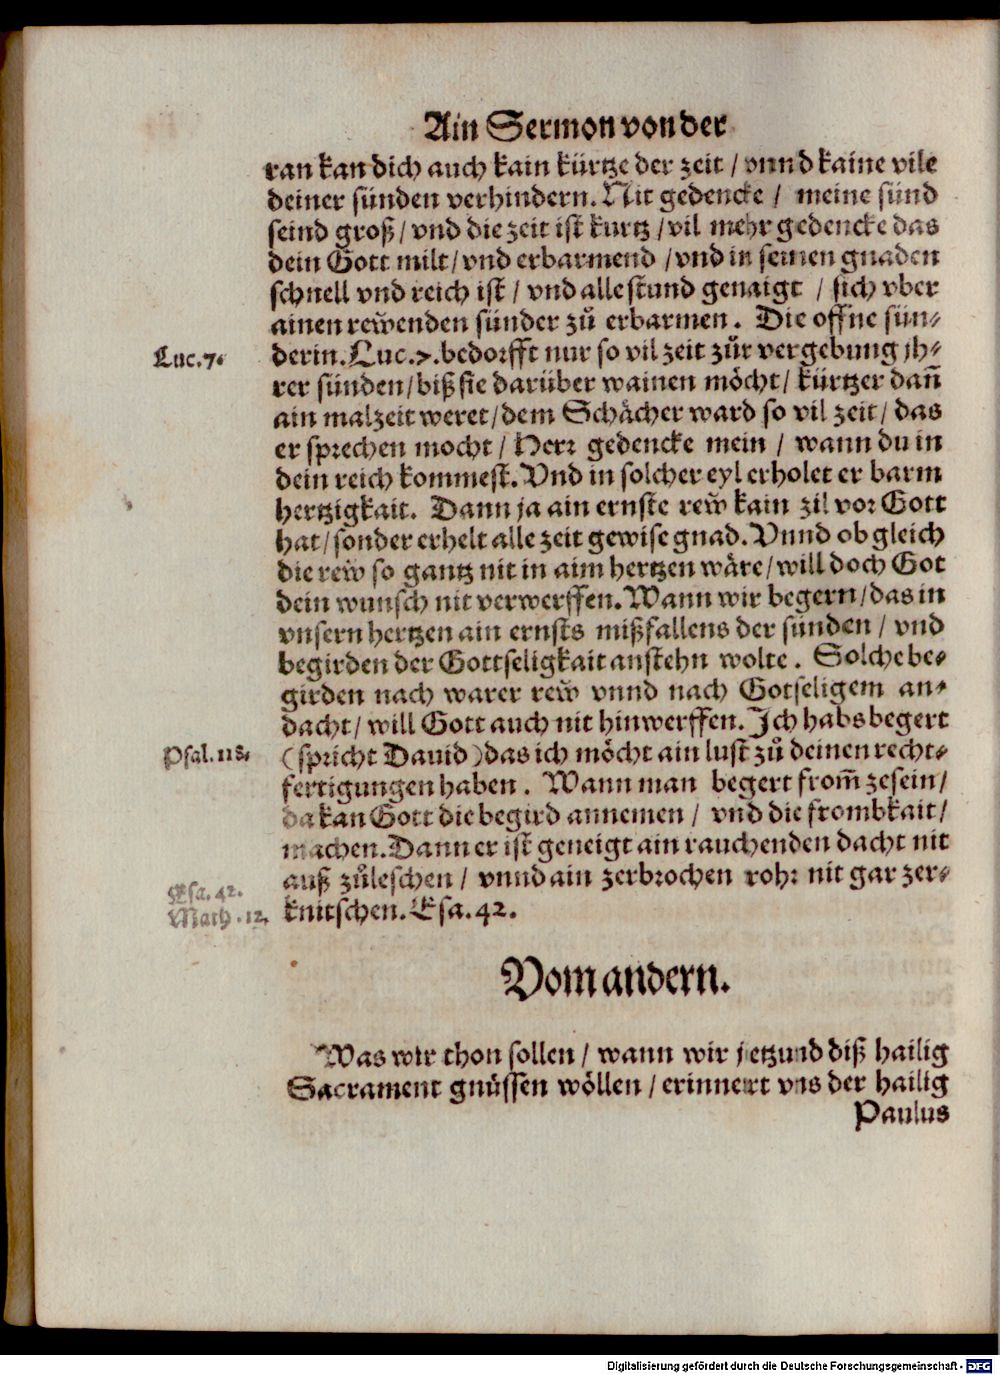 Ain Sermon von der
ran kan dich auch kain kürtze der zeit / vnnd kaine vile
deiner sünden verhindern. Nit gedencke / meine sünd
seind groß / vnd die zeit ist kurtz / vil mehr gedencke das
dein Gott milt / vnd erbarmend / vnd in seinen gnaden
schnell vnd reich ist / vnd alle stund genaigt / sich vber
ainen rew̃enden sünder zů erbarmen. Die offne sün-
Luc. 7.
derin. Luc. 7. bedorfft nur so vil zeit zůr vergebung jh-
rer sünden / biß sie darüber wainen möcht / kürtzer dañ
ain malzeit weret / dem Schächer ward so vil zeit / das
er sprechen mocht / Herr gedencke mein / wann du in
dein reich kommest. Vnd in solcher eyl erholet er barm
hertzigkait. Dann ja ain ernste rew̃ kain zil vor Gott
hat / sonder erhelt alle zeit gewise gnad. Vnnd ob gleich
die rew̃ so gantz nit in aim hertzen wäre / will doch Got
dein wunsch nit verwerffen. Wann wir begern / das in
vnsern hertzen ain ernsts mißfallens der sünden / vnd
begirden der Gottseligkait anstehn wolte. Solche be-
girden nach warer rew̃ vnnd nach Gotseligem an-
dacht / will Gott auch nit hinwerffen. Ich habs begert
Psal. 118.
(spricht Dauid) das ich möcht ain lust zů deinen recht-
fertigungen haben. Wann man begert from̃ zesein /
da kan Gott die begird annemen / vnd die frombkait /
machen. Dann er ist geneigt ain rauchenden dacht nit
Esa. 42.
auß zůleschen / vnnd ain zerbrochen rohr nit gar zer-
Math. 12.
knitschen. Esa. 42.
Vom andern.
Was wir thon sollen / wann wir jetzund diß hailig
Sacrament gnüssen wöllen / erinnert vns der hailig
Paulus
Digitalisierung gefördert durch die Deutsche Forschungsgemeinschaft - DFG